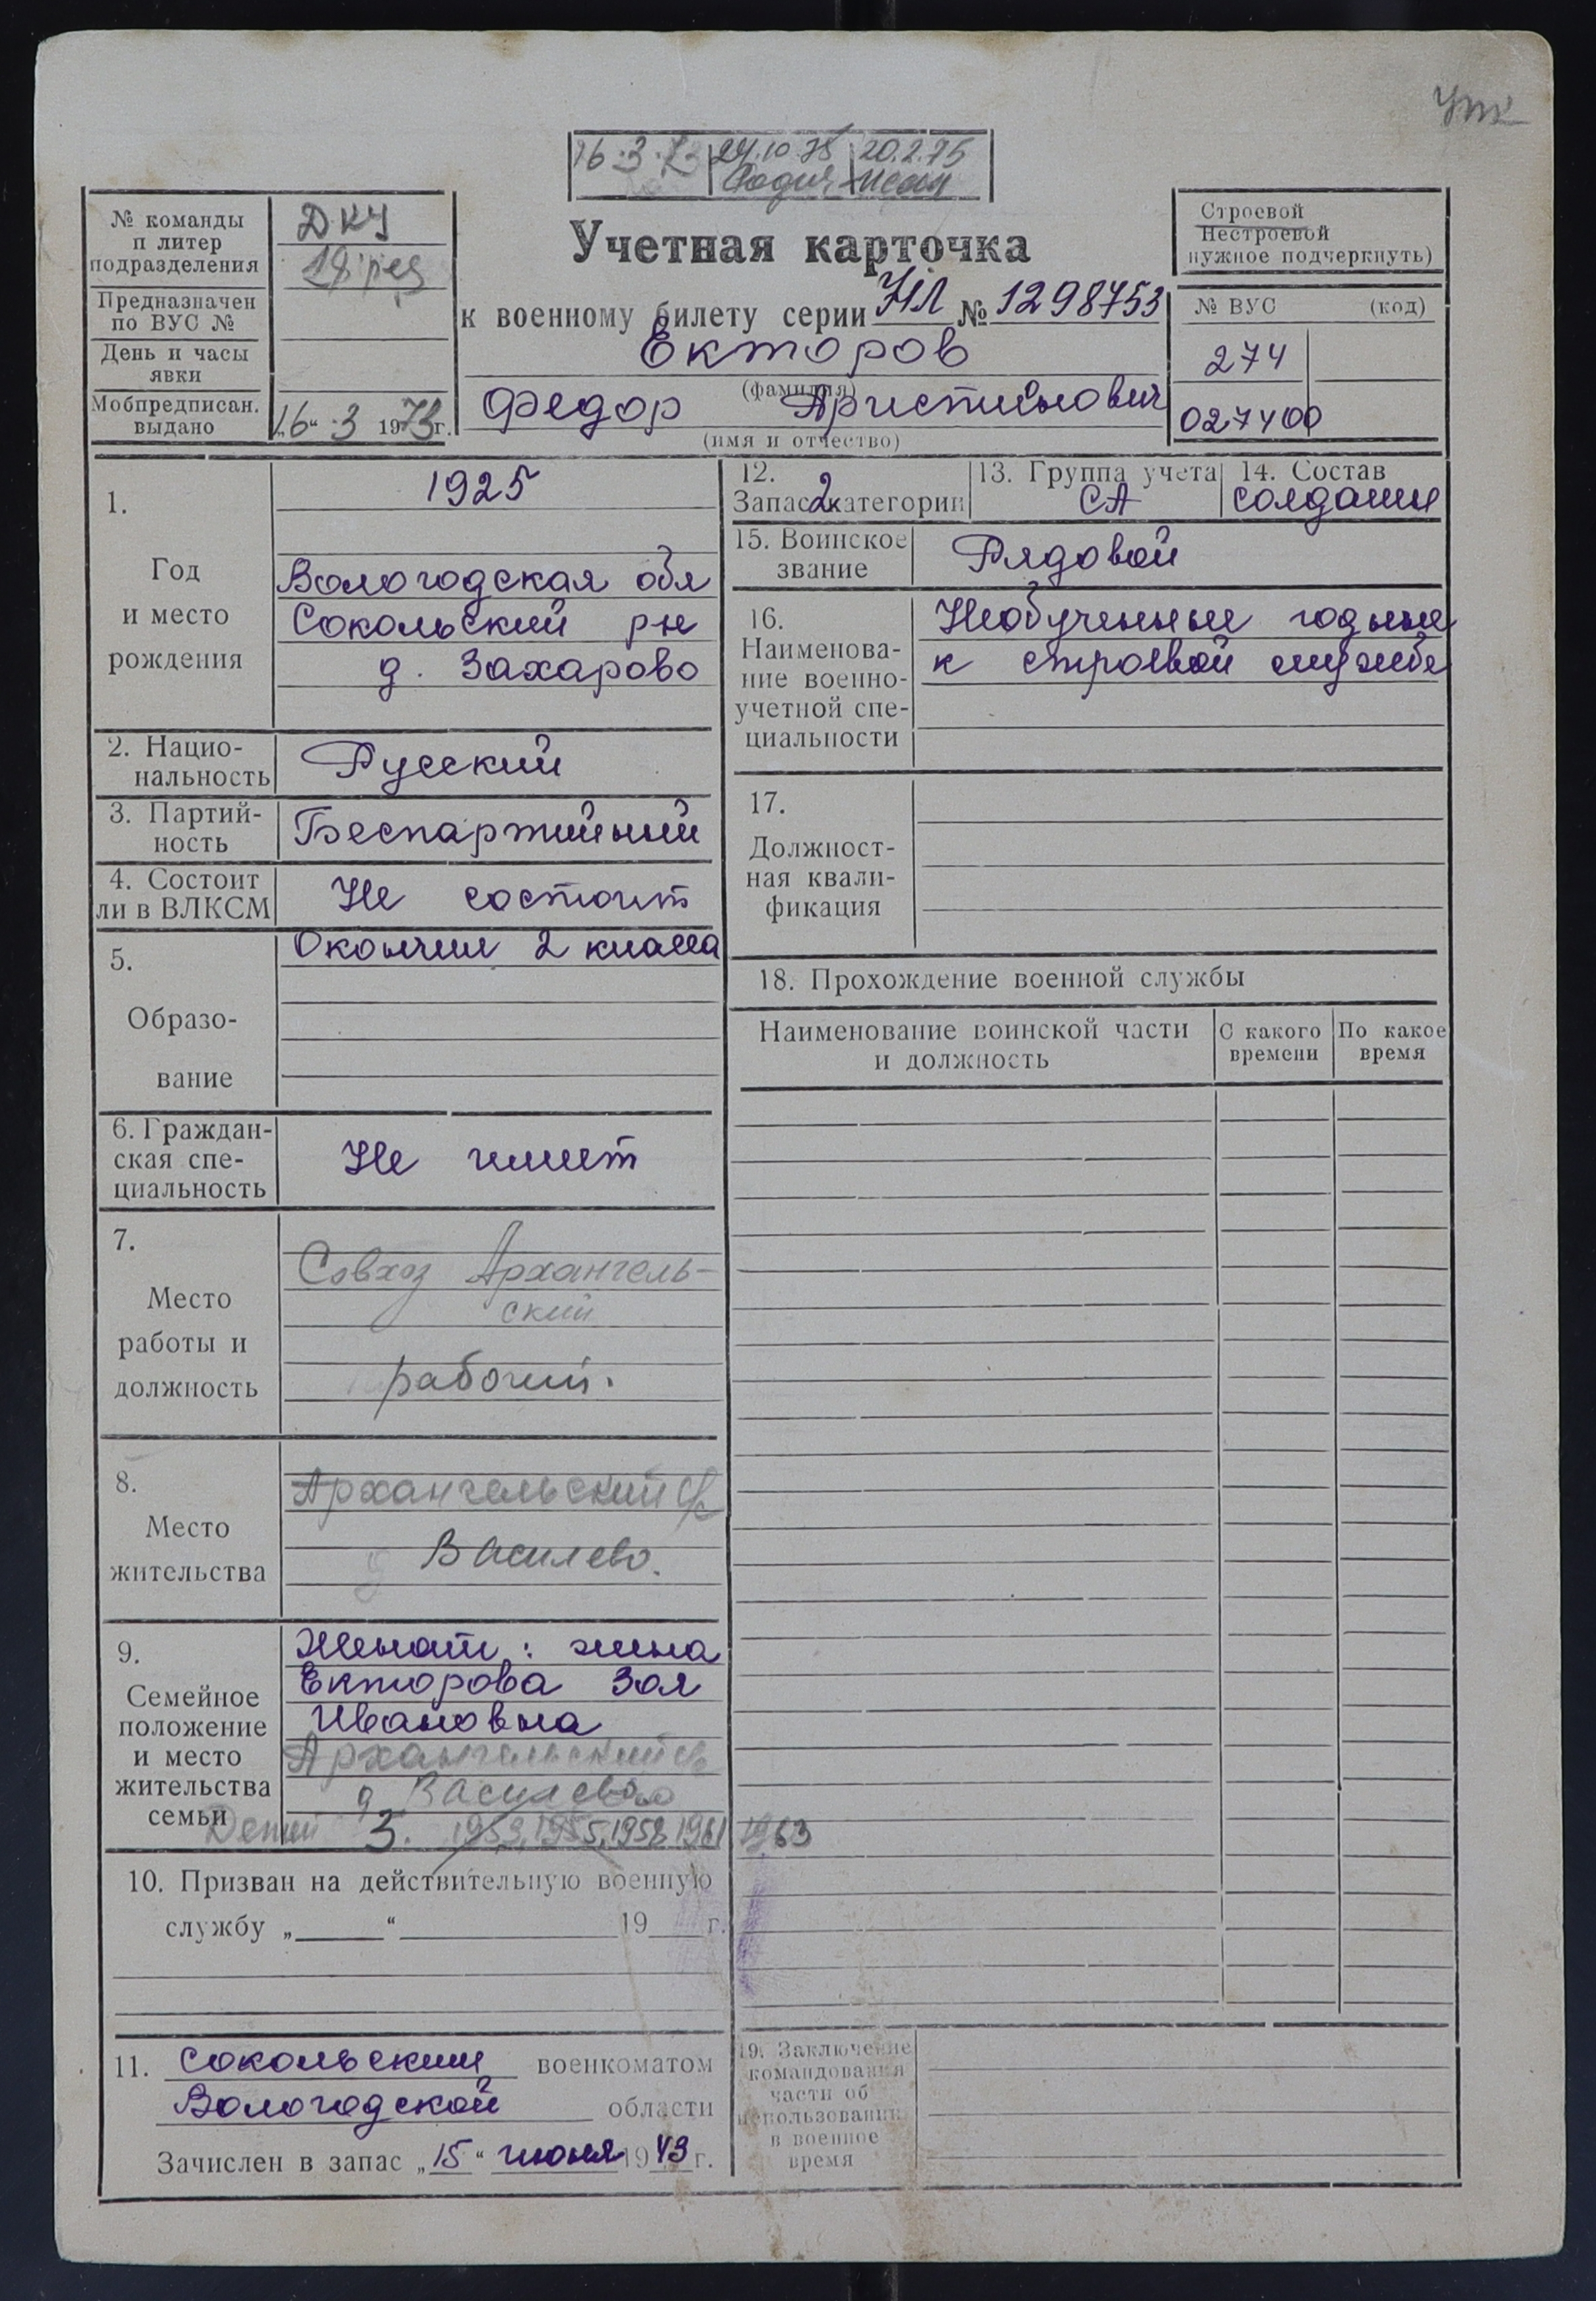 УПК
16.3.73 24.10.75 20.2.75
№ команды
и литер
подразделения
ДКУ
Предназначен
по ВУС №
День и часы
явки
Мобпредписан.
выдано
„16“ 3 1973 г.
Учетная карточка
к военному билету серии НЛ № 1298753
Екторов
(фамилия)
Федор
(имя и отчество)
Строевой
Нестроевой
нужное подчеркнуть)
№ ВУС (код)
274
027400
1.
Год
и место
рождения
1925
Вологодская обл
Сокольский рн
д. Захарово
2. Нацио-
нальность
Русский
3. Партий-
ность
Беспартийный
4. Состоит
ли в ВЛКСМ
Не состоит
5.
Образо-
вание
Окончил 2 класса
6. Граждан-
ская спе-
циальность
Не имеет
7.
Место
работы и
должность
Совхоз Архангель-
ский
рабочий.
8.
Место
жительства
Архангельский с/с
д Василево.
9.
Семейное
положение
и место
жительства
семьи
Женат: жена
Екторова Зоя
Ивановна
Архангельский с/с
д Василево
Детей 3. 1953, 1955, 1958 1961 1963
10. Призван на действительную военную
службу „ “ 19 г.
11. Сокольским военкоматом
Вологодской области
Зачислен в запас „15“ июня 1943 г.
12.
Запас 2 категории
13. Группа учета
СА
14. Состав
солдаты
15. Воинское
звание
Рядовой
16.
Наименова-
ние военно-
учетной спе-
циальности
Необученные годные
к строевой службе
17.
Должност-
ная квали-
фикация
18. Прохождение военной службы
Наименование воинской части
и должность
С какого
времени
По какое
время
19. Заключение
командования
части об
использовании
в военное
время